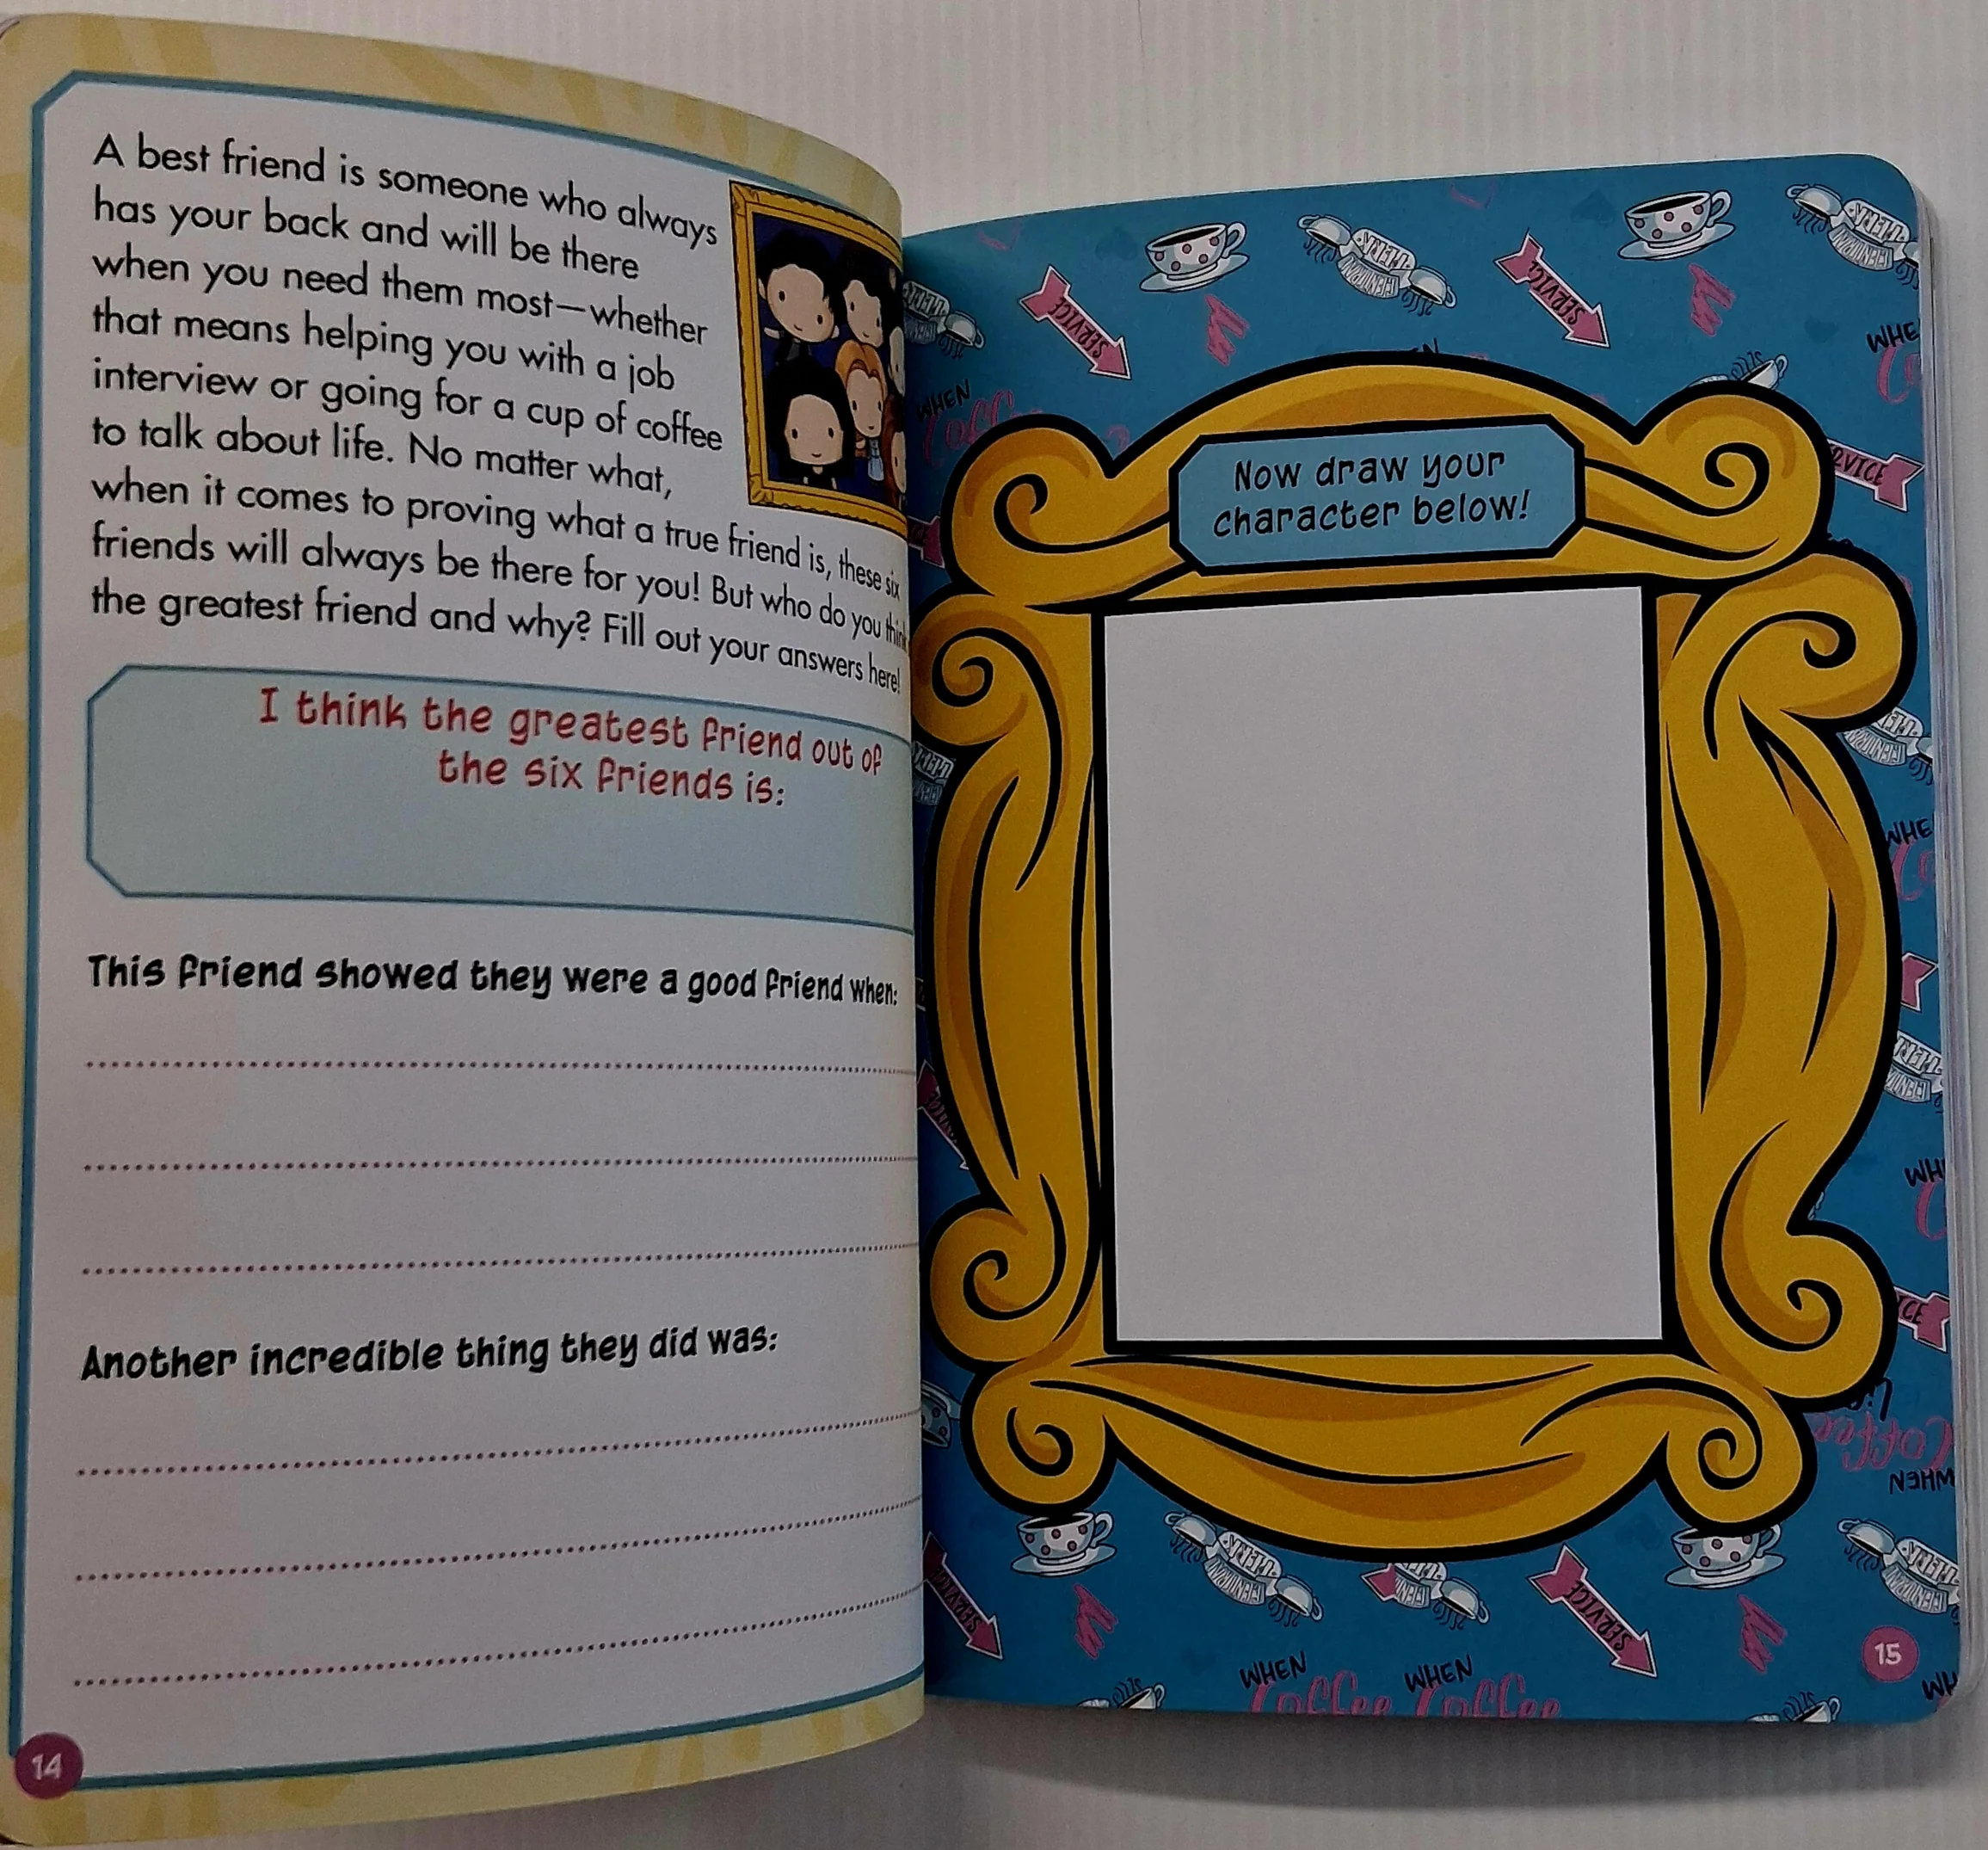 A best friend is someone who always
has your back and will be there
when you need them most—whether
that means helping you with a job
interview or going for a cup of coffee
to talk about life. No matter what,
when it comes to proving what a true friend is, these six
friends will always be there for you! But who do you think
the greatest friend and why? Fill out your answers here!
I think the greatest friend out of
the six friends is:
This friend showed they were a good friend when:
Another incredible thing they did was:
14
Now draw your
character below!
SERVICE
SERVICE
CENTRAL PERK
WHEN
Coffee
SERVICE
SERVICE
WHEN
Coffee
WHEN
Coffee
WHEN
Coffee
15